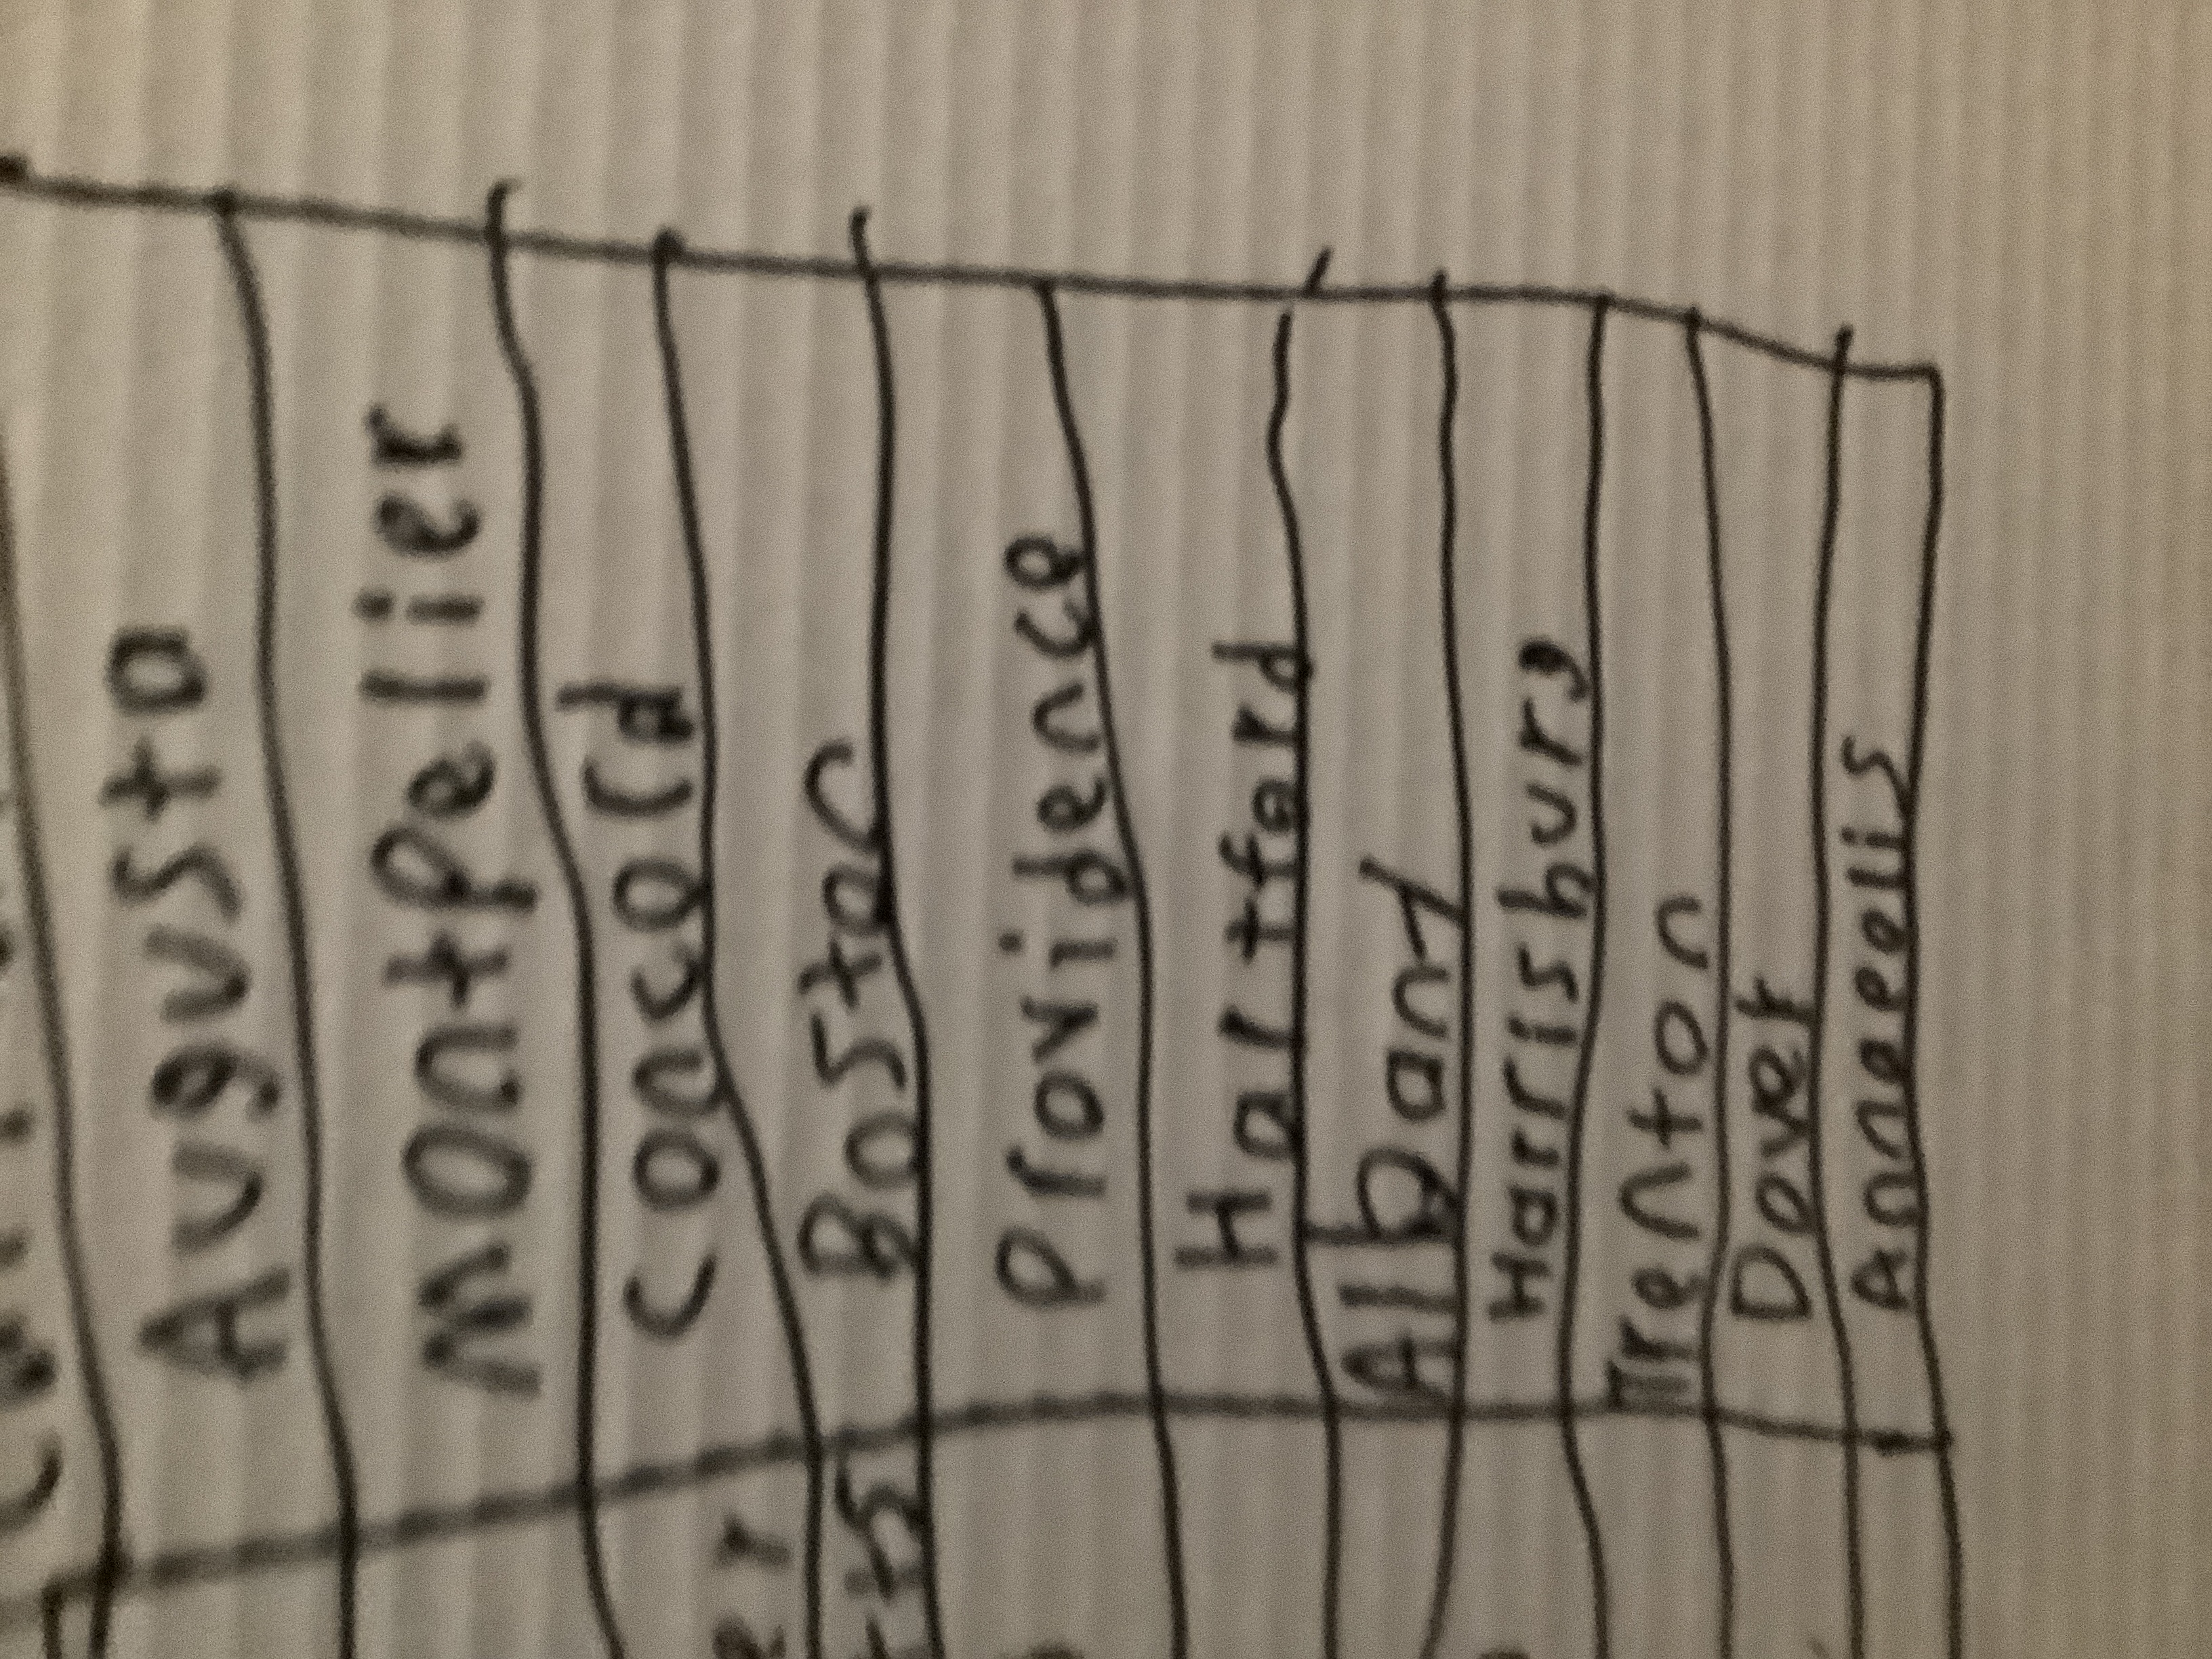 Augusta
Montpelier
Concord
Boston
Providence
Hartford
Albany
Harrisburg
Trenton
Dover
Annapolis